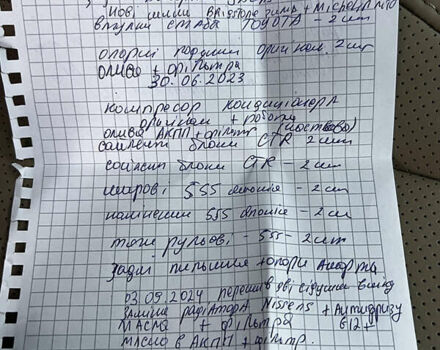 Нові шини BRIGSTONE зима + Michelin літо
втулки стаба TOYOTA - 2 шт
опорні подушки оригінал. 2 шт
олива + фільтра
30.06.2023
компресор кондиціонера
оригінал + робота
олива АКПП + фільтр
сайлент блоки CTR 2 шт
сайлент блоки CTR - 2 шт
шарові 555 японія - 2 шт
наконечники 555 японія - 2 шт
тяги рульові - 555 - 2 шт
задні пильники + опори Аморта
03.09.2024,
заміна радіатора Nissens + Антифризу
масла + фільтра G12+
масло в АКПП + фільтр.